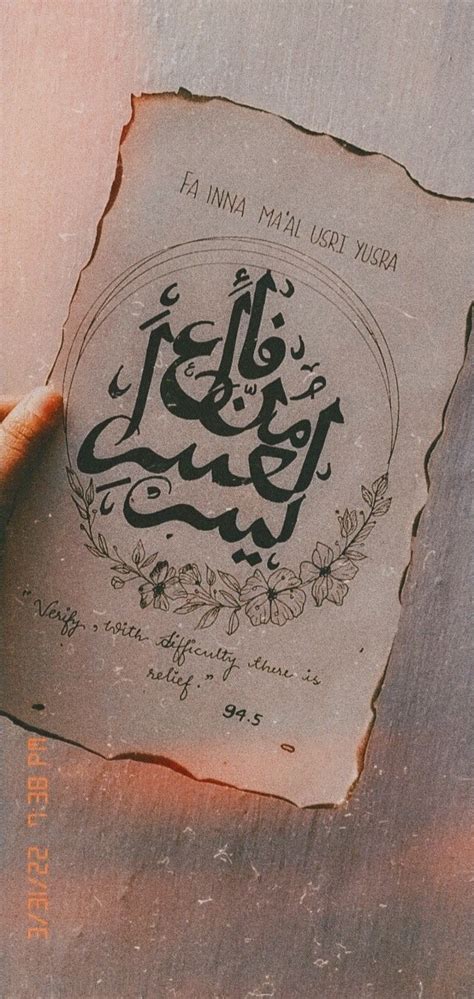 FA INNA MA'AL USRI YUSRA
فأنّ مع العسر يسرا
"Verify, with difficulty there is
relief."
94.5
3/31/22 7:38 PM